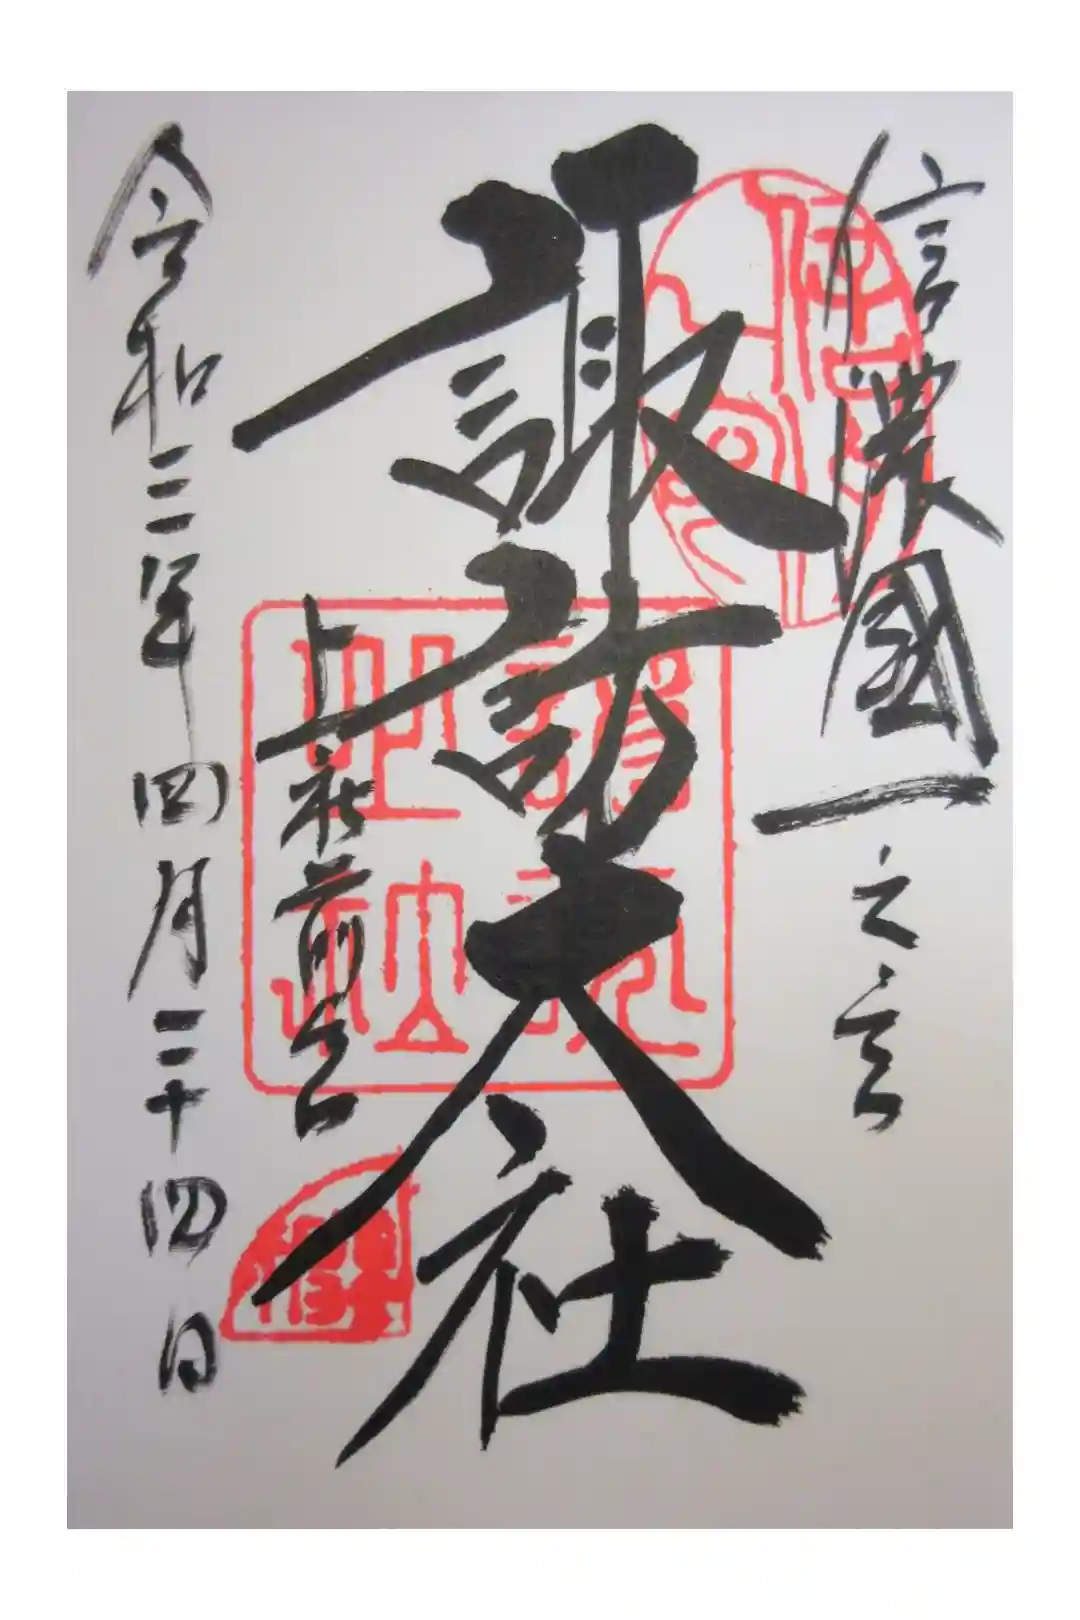 信濃國一之宮
諏訪大社
上社前宮
令和二年四月二十四日